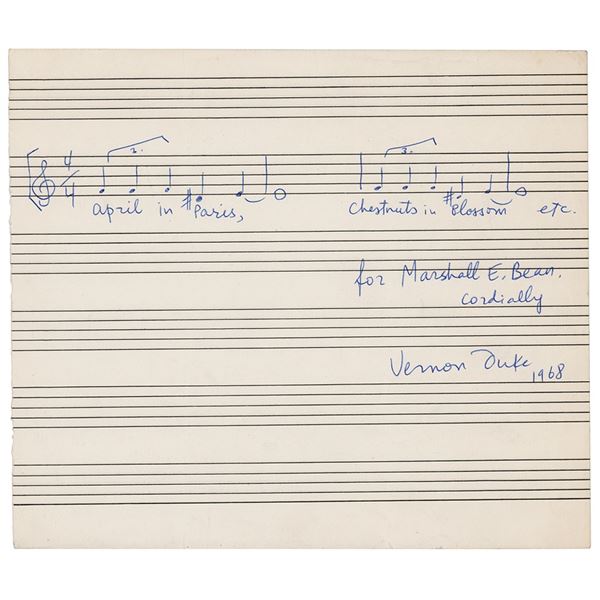 4/4 3. 3.
April in Paris, Chestnuts in Blossom etc.
for Marshall E. Bean.
cordially
Vernon Duke
1968